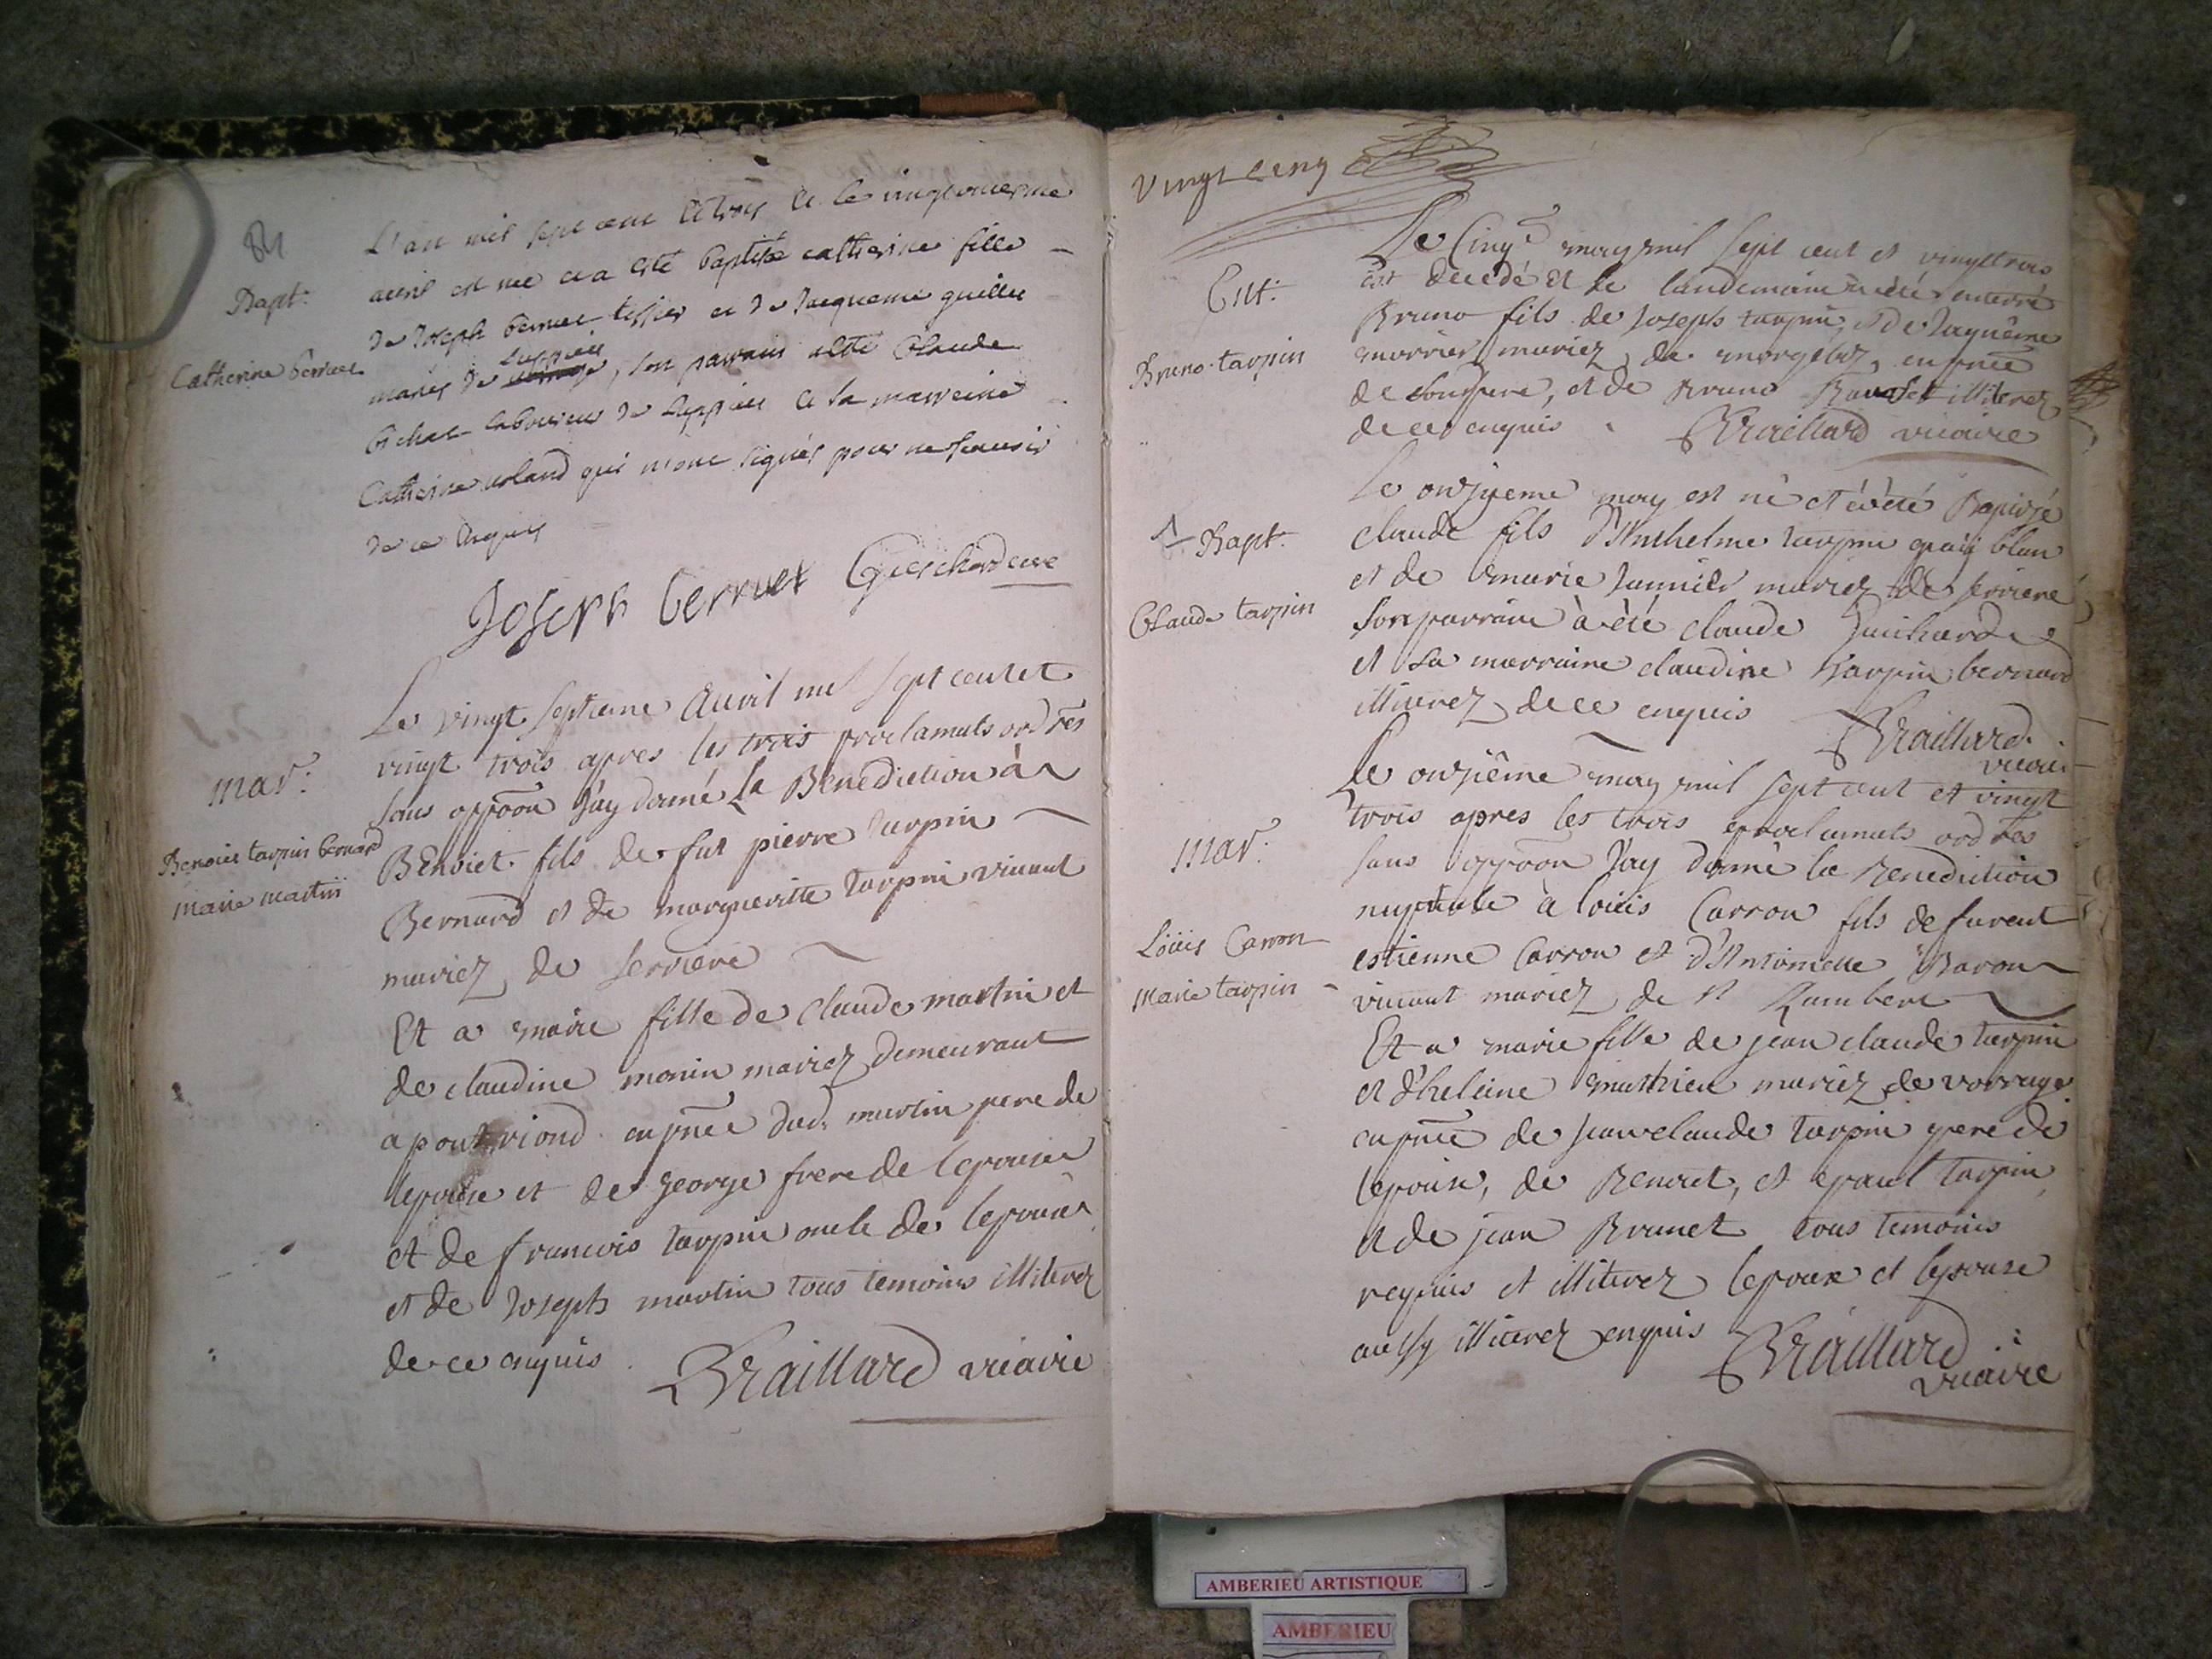 Bapt:
Catherine berruet
L'an mil sept cent et trois et le vingt onziesme
avril est née et a esté baptisée catherine fille
de Joseph berruet tessier et de Jaqueme
mariés de son parrain a été Claude
laboureur de et la marreine
Catherine voland qui n'ont signés pour ne scavoir
de ce enquis
Joseph berruet Guichard curé
mar:
Benoict tarpin bernard
Marie martin
Le vingt septieme Auvril mil sept cent et
vingt trois apres les trois proclamats ord res
sans oppoōn J'ay donné La Benediction à
Benoiet fils de fut pierre tarpin
Bernard et de margueritte tarpin vivant
mariez de serriere
Et a marie fille de Claude martin et
de claudine monin mariez demeurant
a pont riond enpñce dud. martin pere de
lepouse et de george frere de lepouse
et de francois tarpin oncle de lepoux
et de Joseph martin tous temoins illiterez
de ce enquis Braillard vicaire
vingt cinq
Ent:
Bruno tarpin
Le Cinqe may mil sept cent et vingttrois
est decedé et le landemain a été enterré
Bruno fils de Joseph tarpin, et de Jaquême
mariez de enpñce
de et de Bruno illiterez
de ce enquis Braillard vicaire
1 Bapt:
Claude tarpin
Le onzieme may est né et à été Baptisé
claude fils d'Anthelme tarpin blan
et de marie mariez de serriere
son parrain à été claude Guichard
et sa marraine claudine tarpin bernard
illiterez de ce enquis Braillard
vicaire
mar:
Loüis Carron
Marie tarpin
Le onziême may mil sept cent et vingt
trois apres les trois proclamats ord res
sans oppoōn J'ay donné la Benediction
nuptiale à loüis Carron fils defurent
estienne Carron et d'Antoinette Baron
vivant mariez de st Rambert
Et a marie fille de jean claude tarpin
et d'heleine mathieu mariez de vorrage
enpñce de jean claude tarpin pere de
lepouse, de Benoiet, et paul tarpin
et de jean Brunet tous temoins
requis et illiterez lepoux et lepouse
aussy illiterez enquis Braillard
vicaire
AMBERIEU ARTISTIQUE
AMBERIEU